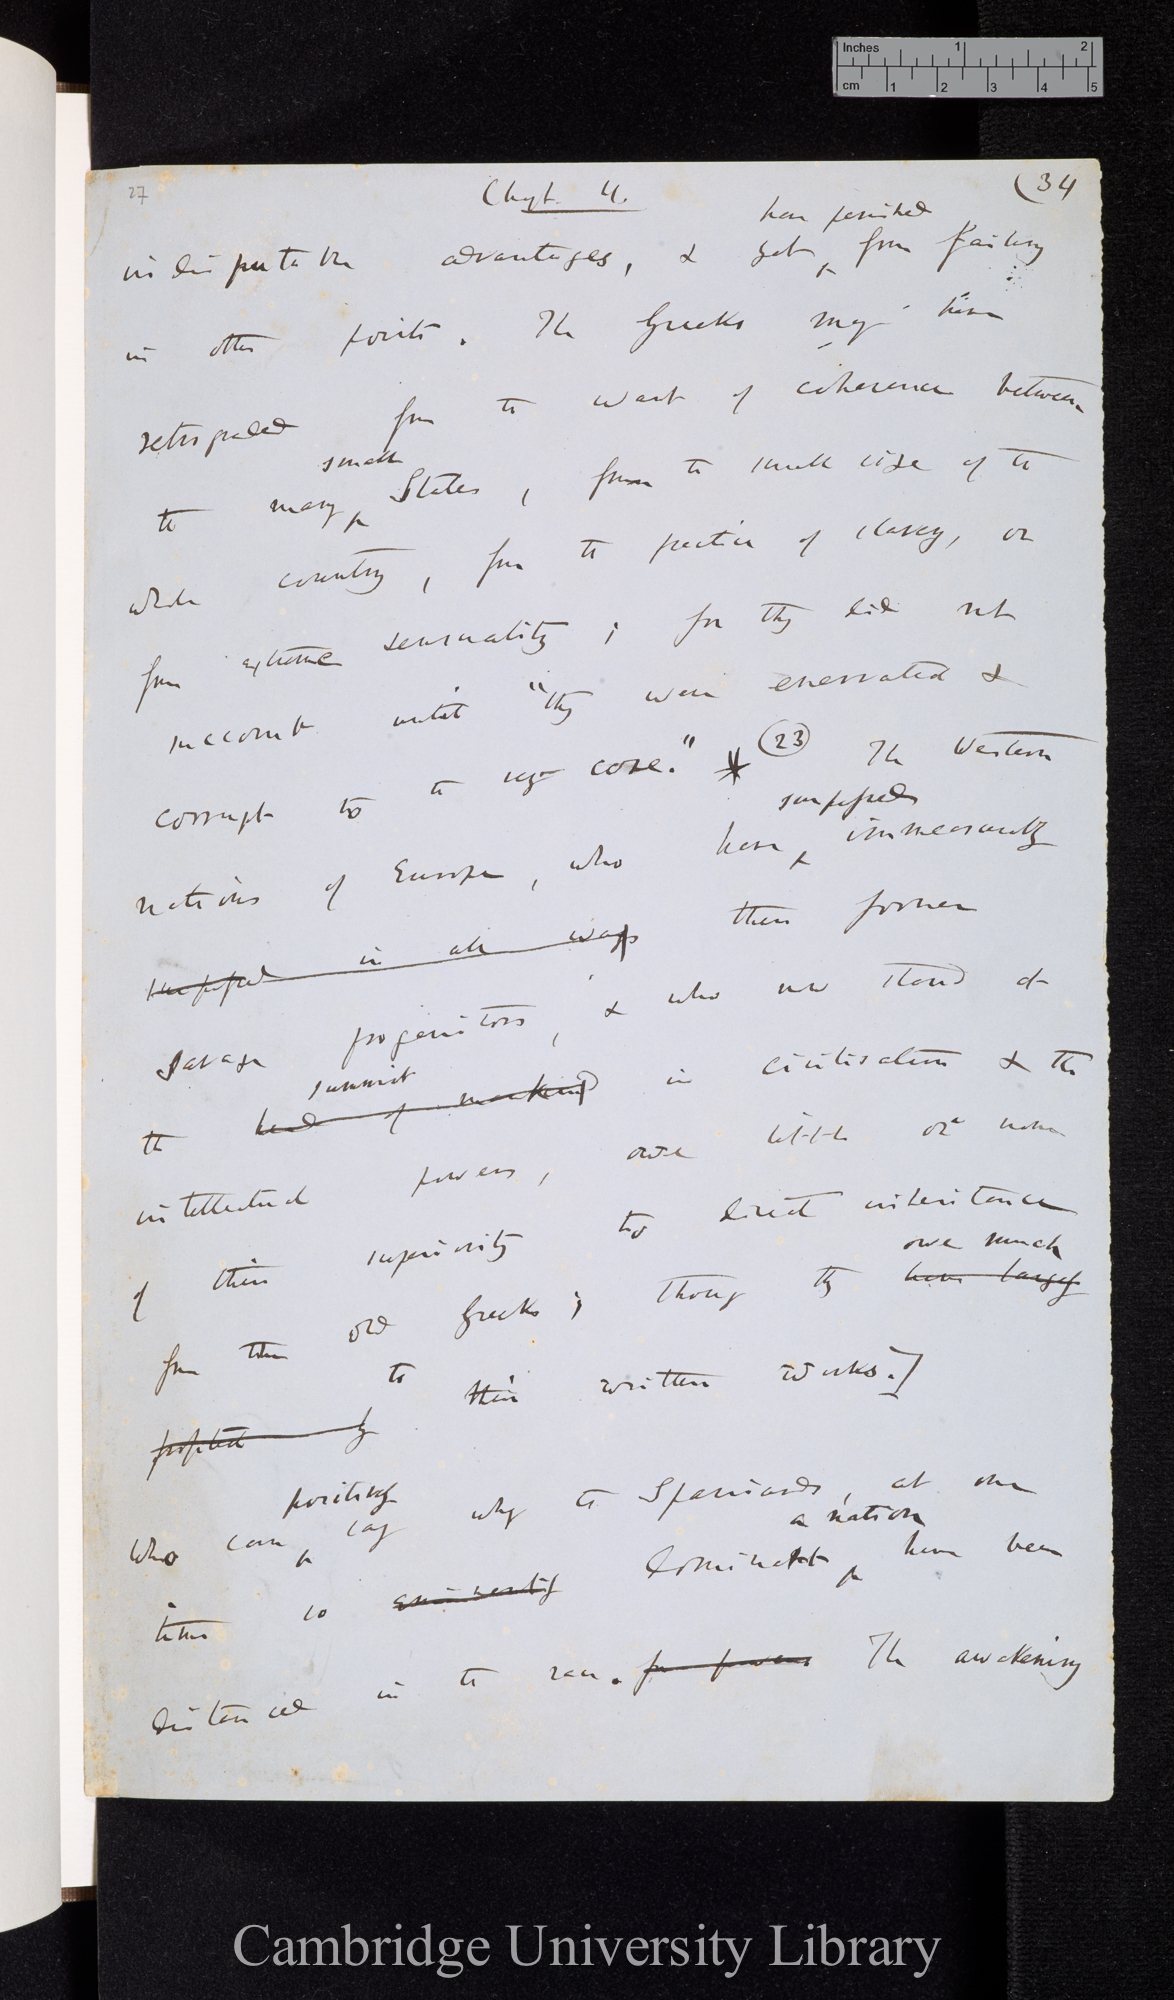 Inches 1 2
cm 1 2 3 4 5
27
Chapt. 4.
(34
have perished
indisputable advantages, & yet from failing
in other points. The Greeks may have
retrograded from the want of coherence between
small
the many States, from the small size of the
whole country, from the practice of slavery, or
from extreme sensuality; for they did not
succomb until "they were enervated &
corrupt to the very core." * (23) The Western
surpassed
nations of Europe, who have immeasurably
surpassed in all ways their former
savage progenitors, & who now stand at
summit
the head of mankind in civilisation & the
intellectual powers, owe little or none
of their superiority to direct inheritance
owe much
from the old Greeks; though they have largely
to their written works.]
profited by
positively
Who can say why the Spaniards, at one
a nation
time so eminently dominant, have been
distanced in the race. for power The awakening
Cambridge University Library